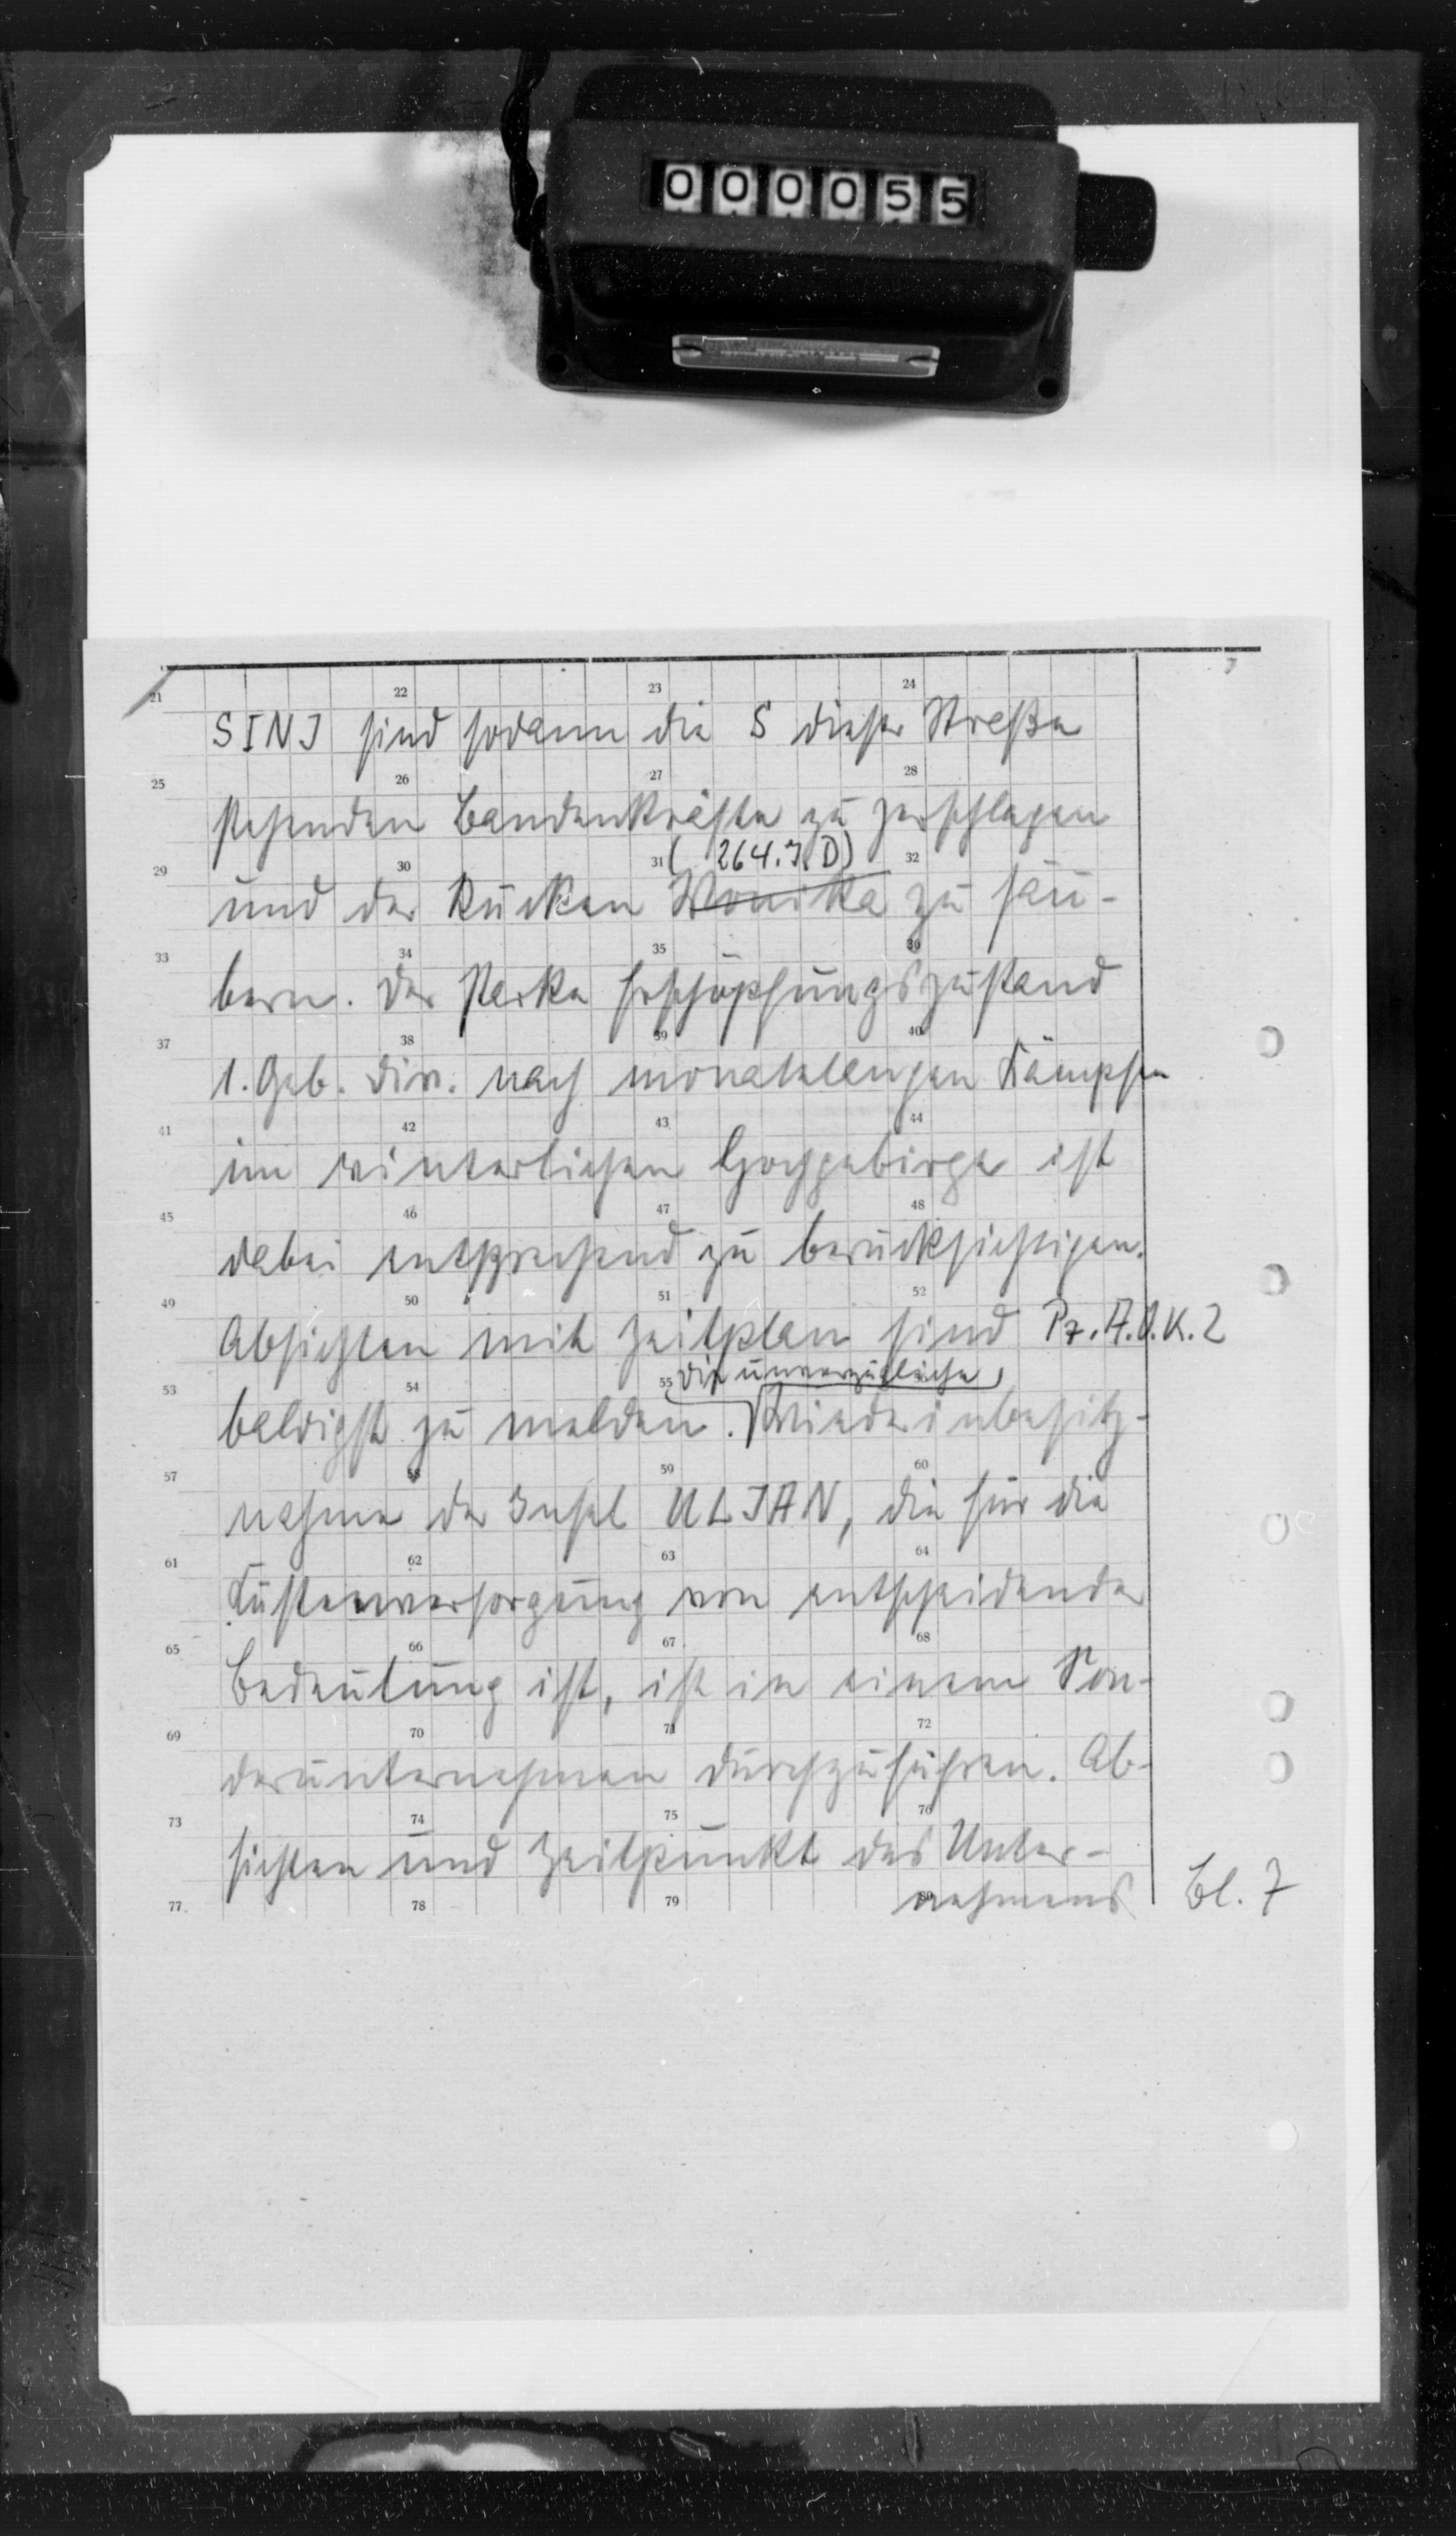 000055
21 22 23 24
SINJ sind sodann die S dieser Straße
25 26 27 28
stehenden Bandenkräfte zu zerschlagen
(264. I.D)
29 30 31 32
und der Rücken zu säu-
33 34 35 36
bern. Der starke Erschöpfungszustand
37 38 39 40
1. Geb. Div. nach monatelangen Kämpfen
41 42 43 44
im winterlichen Hochgebirge ist
45 46 47 48
dabei entsprechend zu berücksichtigen.
49 50 51 52
Absichten mit Zeitplan sind Pz.A.O.K.2
die unverzügliche
53 54 55
baldigst zu melden. Wiederinbesitz-
57 58 59 60
nahme der Insel ULJAN, die für die
61 62 63 64
Küstenversorgung von entscheidender
65 66 67 68
Bedeutung ist, ist in einem Son-
69 70 71 72
derunternehmen durchzuführen. Ab-
73 74 75 76
sichten und Zeitpunkt des Unter-
77 78 79 80
nehmens Bl. 7